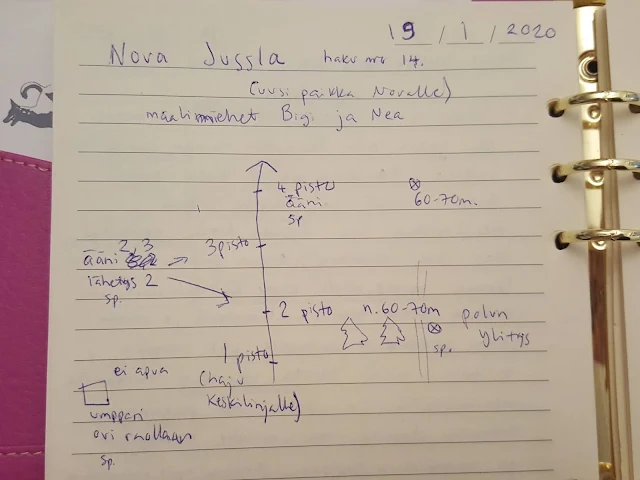 19 / 1 / 2020
Nova Jussla haku nro 14.
(uusi paikka Novalle)
maalimiehet Bigi ja Nea
4 pisto
ääni
sp
60-70m.
3 pisto
2, 3
ääni
lähetys 2
sp.
2 pisto
n. 60-70m
polun
ylitys
sp.
1 pisto
(haju
keskilinjalle)
ei apua
umppari
ovi raollaan
sp.